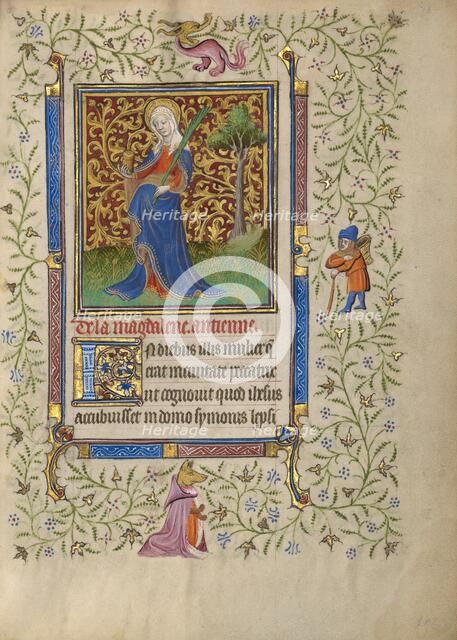 De la magdalene. antienne.
In diebus illis mulier q
erat in ciuitate peccatrix
ut cognouit quod ihesus
accubuisset in domo symonis lepsi
Heritage
Heritage
Heritage
Heritage
Heritage
Heritage